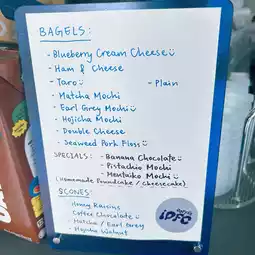 BAGELS:
- Blueberry Cream Cheese
- Ham & Cheese
- Taro - Plain
- Matcha Mochi
- Earl Grey Mochi
- Hojicha Mochi
- Double Cheese
- Seaweed Pork Floss
SPECIALS: - Banana Chocolate
- Pistachio Mochi
- Mentaiko Mochi
(Homemade Poundcake / Cheesecake)
SCONES:
Honey Raisins
Coffee Chocolate
Matcha / Earl Grey
Hojicha Walnut